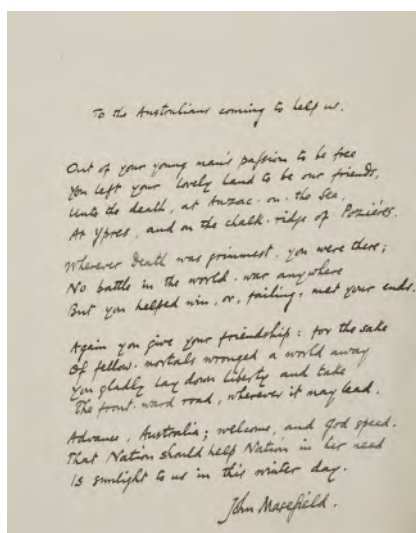 To the Australians coming to help us.
Out of your young man's passion to be free
You left your lovely land to be our friends,
Unto the death, at Anzac-on-the Sea,
At Ypres, and on the chalk-ridge of Pozières.
Wherever Death was grimmest, you were there;
No battle in the world-war anywhere
But you helped win, or, failing, met your ends.
Again you give your friendship: for the sake
Of fellow-mortals wronged a world away
You gladly lay down liberty and take
The front-ward road, wherever it may lead.
Advance, Australia; welcome, and God speed.
That Nation should help Nation in her need
Is sunlight to us in this winter day.
John Masefield.